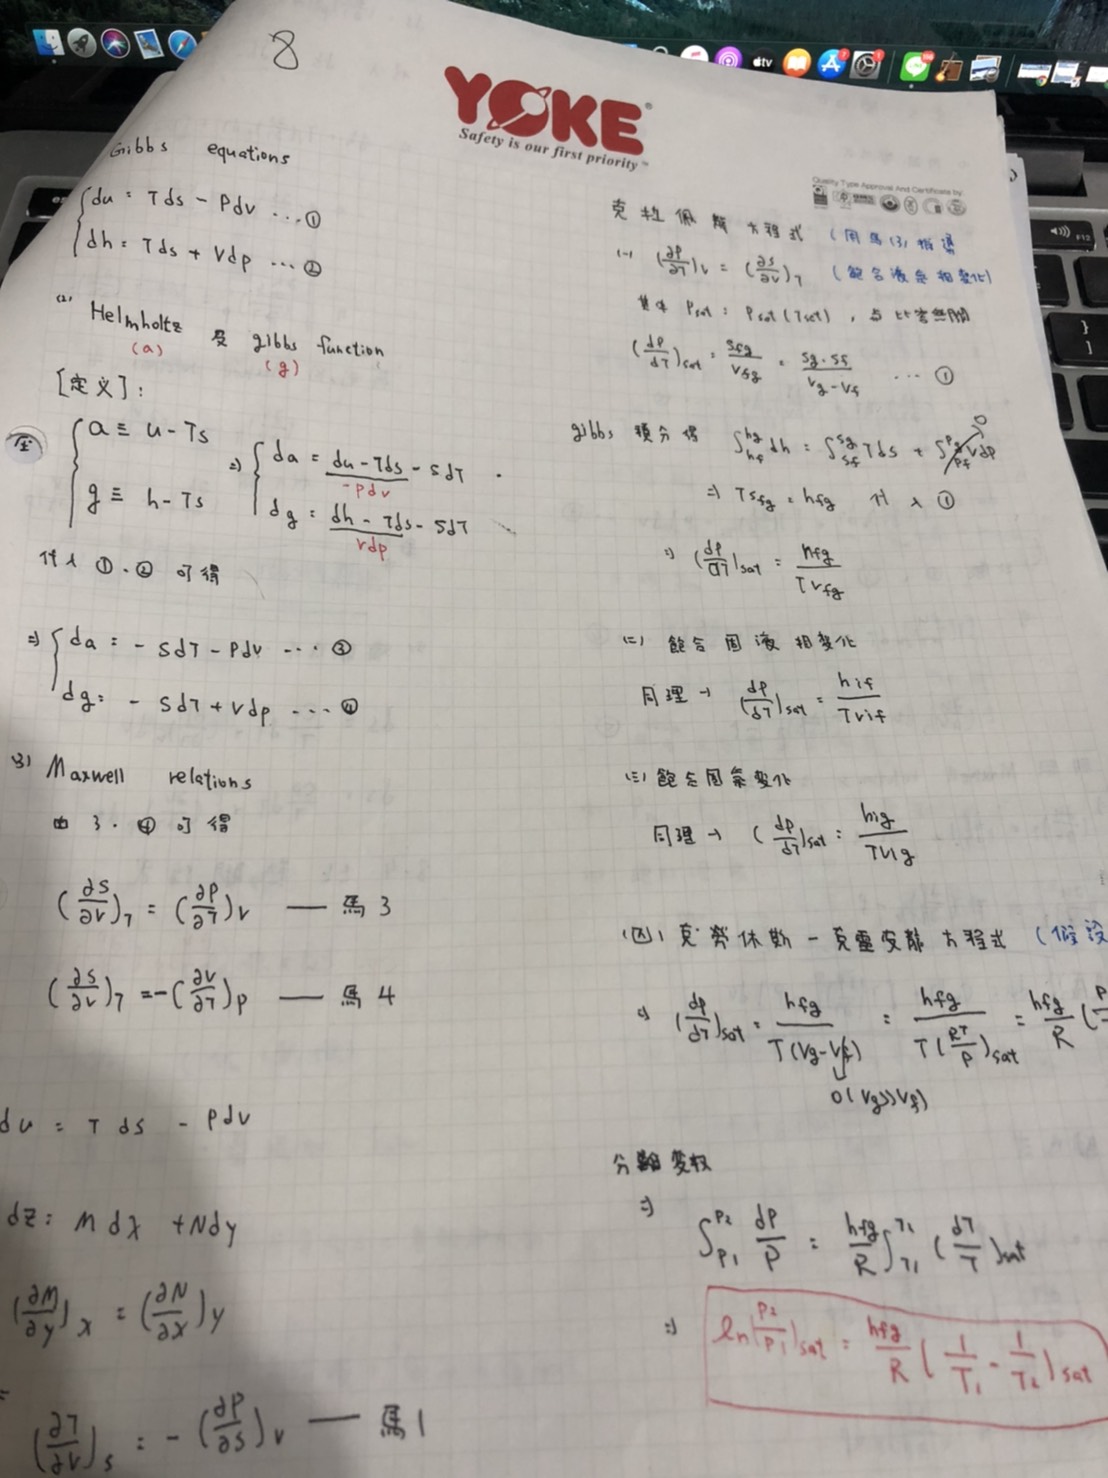 8
YOKE
Safety is our first priority
Quality Type Approval And Certificate by
Gibbs equations
du = Tds - Pdv ...①
dh = Tds + Vdp ...②
(2) Helmholtz 及 gibbs function
(a) (g)
[定义]:
a ≡ u - Ts
g ≡ h - Ts
⇒ da = du - Tds - sdT
-pdv
dg = dh - Tds - sdT
vdp
代入 ①、② 可得
⇒ da = - sdT - Pdv ... ③
dg = - sdT + vdp ... ④
(3) Maxwell relations
由 3、④ 可得
(∂s/∂v)T = (∂P/∂T)v — 馬 3
(∂s/∂v)T = -(∂v/∂T)p — 馬 4
du = T ds - pdv
dz = M dx + Ndy
(∂M/∂y)x = (∂N/∂x)y
(∂T/∂v)s = - (∂P/∂s)v — 馬 1
克拉佩斯方程式 (用馬(3)推導
(一) (∂P/∂T)v = (∂s/∂v)T (飽合液氣相變化)
其中 Psat = Psat(Tsat), 与比容無關
(dp/dT)sat = sfg/vfg = sg-sf/vg-vf ... ①
gibbs 積分得 ∫hf^hg dh = ∫sf^sg Tds + ∫Pf^Pg vdp 0
⇒ Tsfg = hfg 代入 ①
⇒ (dp/dT)sat = hfg/Tvfg
(二) 飽合固液相變化
同理 → (dp/dT)sat = hif/Tvif
(三) 飽合固氣變化
同理 → (dp/dT)sat = hig/Tvig
(四) 克勞休斯-克雷安龍方程式 (假設
⇒ (dp/dT)sat = hfg/T(vg-vf) = hfg/T(RT/P)sat = hfg/R (P
0(vg>>vf)
分離變數
⇒ ∫P1^P2 dp/P = hfg/R ∫T1^T2 (dT/T)sat
⇒ ln(P2/P1)sat = hfg/R (1/T1 - 1/T2)sat